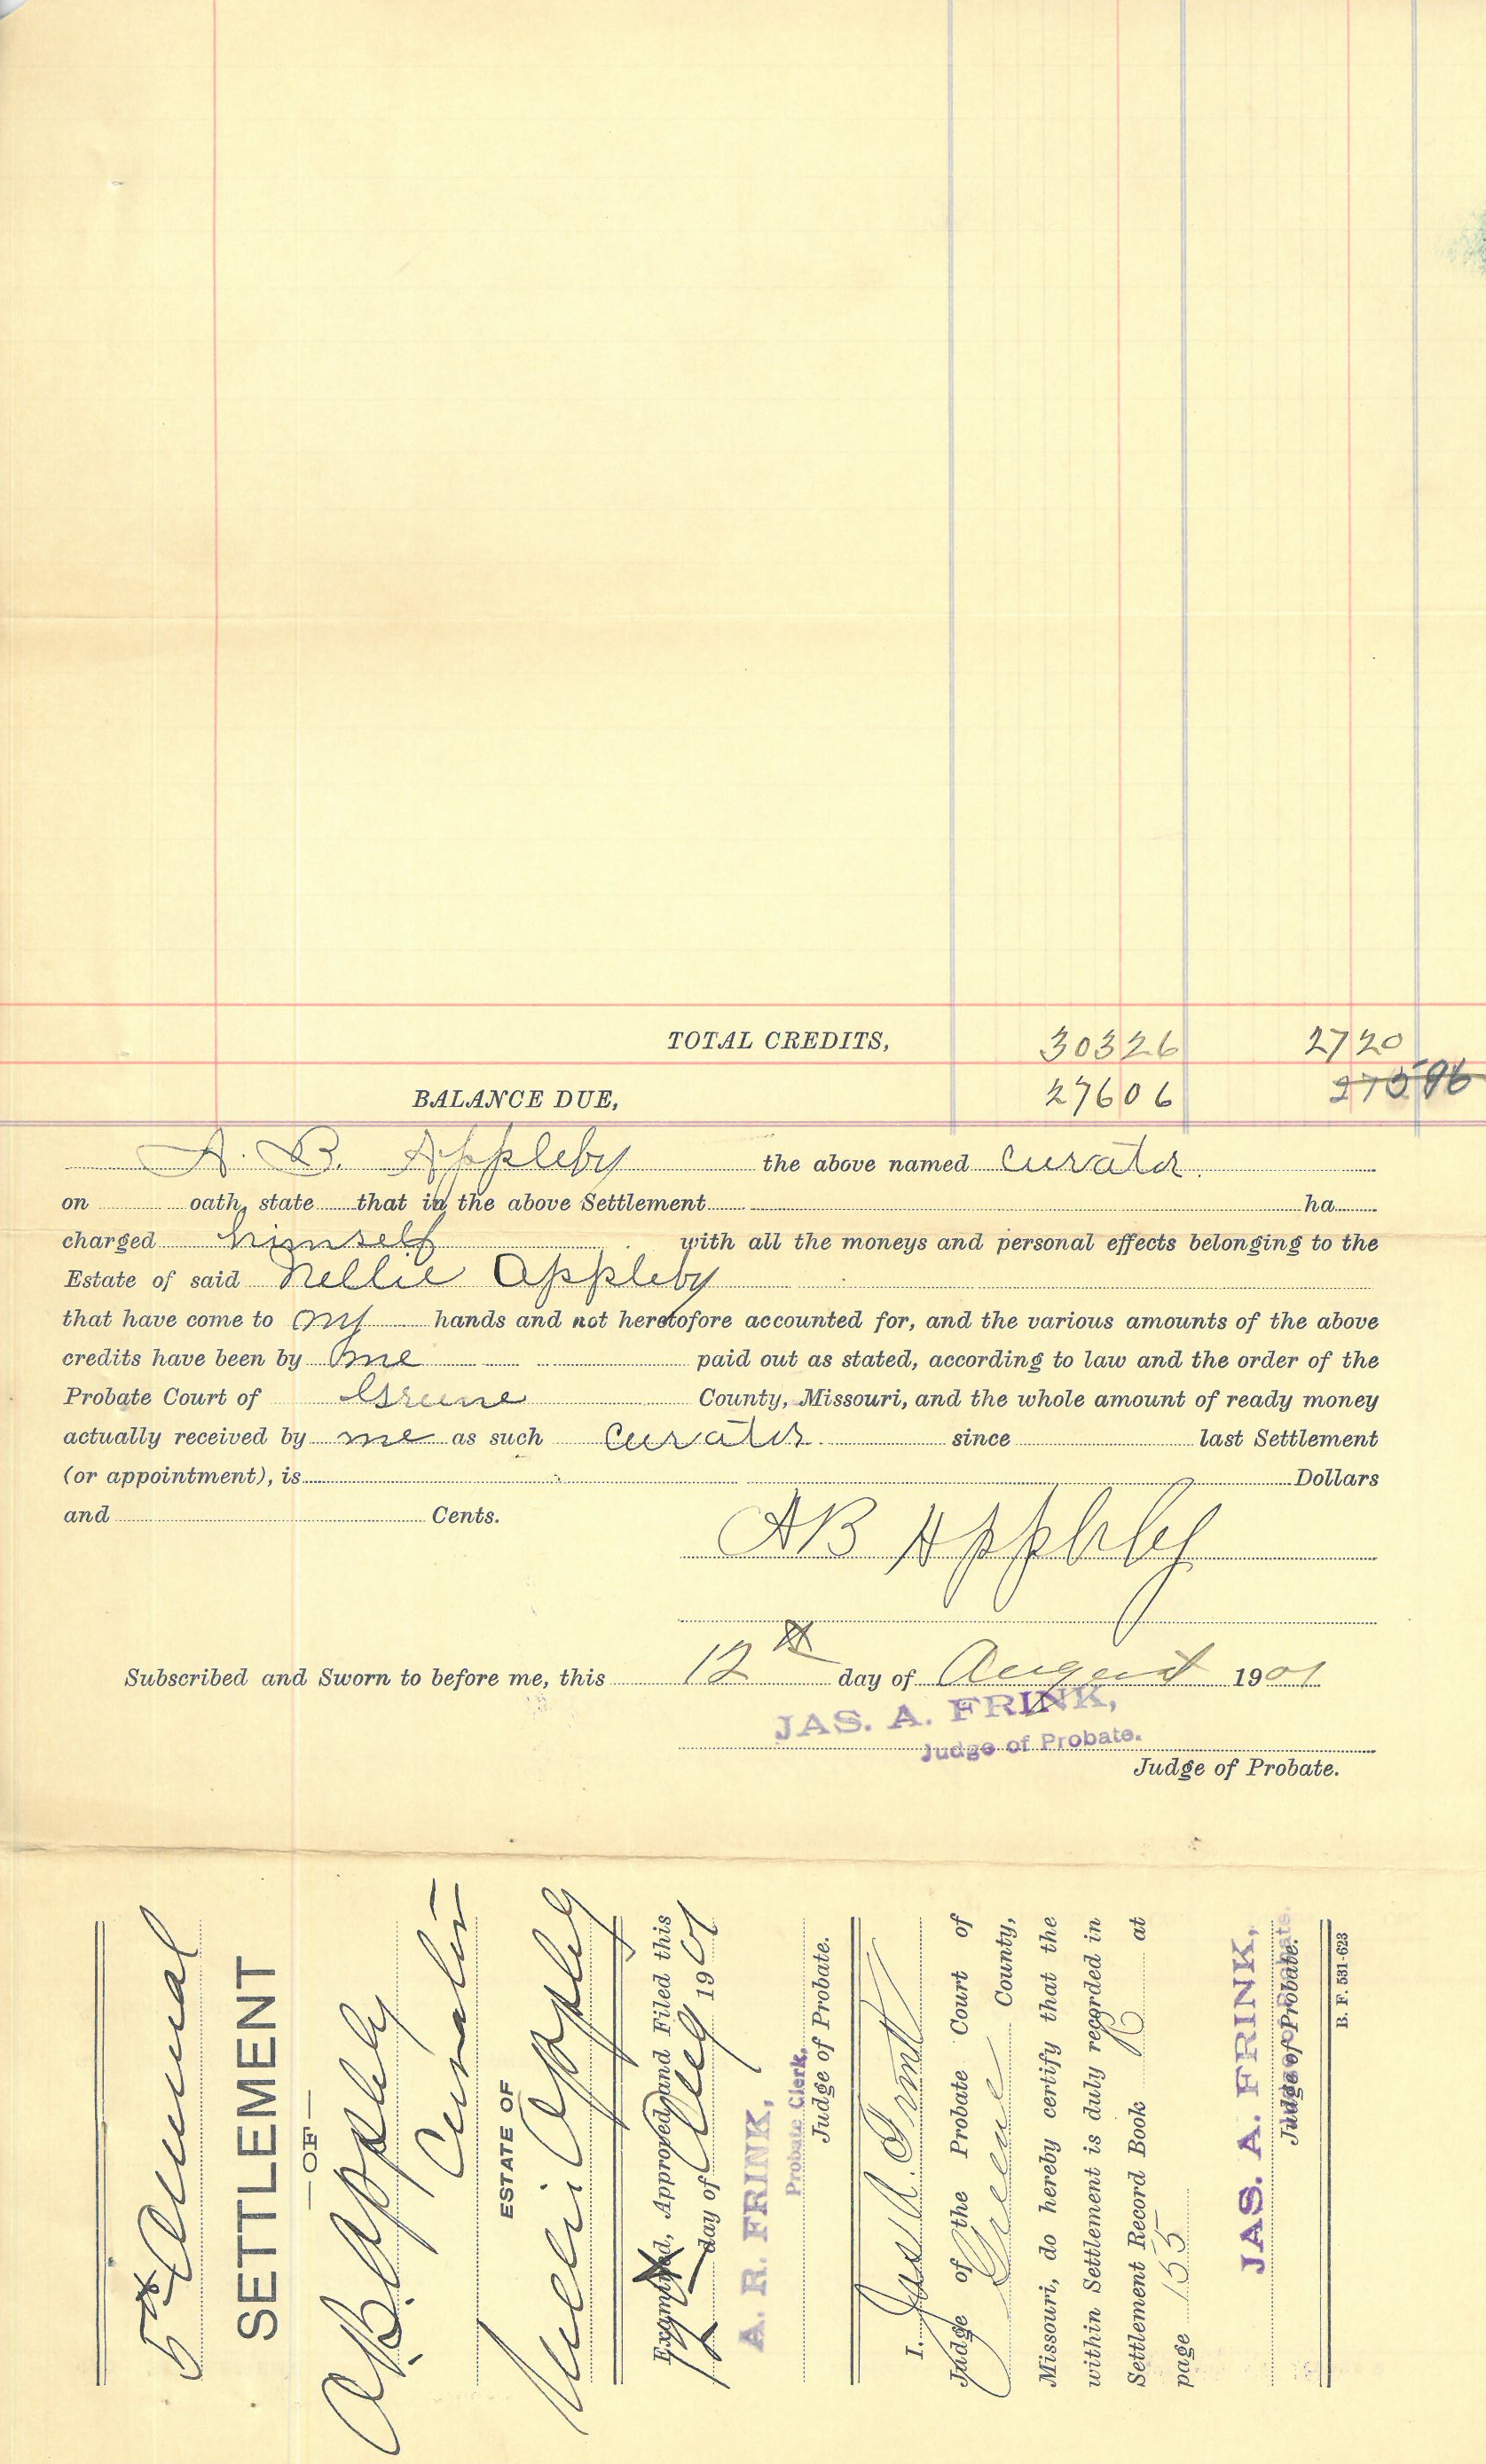 TOTAL CREDITS, 30326 2720
BALANCE DUE, 27606 27596
A. B. Appleby the above named curator.
on oath, state that in the above Settlement ha
charged himself with all the moneys and personal effects belonging to the
Estate of said Nellie Appleby
that have come to my hands and not heretofore accounted for, and the various amounts of the above
credits have been by me paid out as stated, according to law and the order of the
Probate Court of Greene County, Missouri, and the whole amount of ready money
actually received by me as such curator. since last Settlement
(or appointment), is Dollars
and Cents.
AB Appleby
Subscribed and Sworn to before me, this 12th day of August 1901
JAS. A. FRINK,
Judge of Probate.
Judge of Probate.
5th Annual
SETTLEMENT
—OF—
A.B. Appleby
Curator
ESTATE OF
Nellie Appleby
Examined, Approved and Filed this
12 day of Aug 1901
A. R. FRINK,
Probate Clerk,
Judge of Probate.
I. Jas A. Frink
Judge of the Probate Court of
Greene County,
Missouri, do hereby certify that the
within Settlement is duly recorded in
Settlement Record Book at
page 155
JAS. A. FRINK,
Judge of Probate.
Judge of Probate.
B. F. 531-623